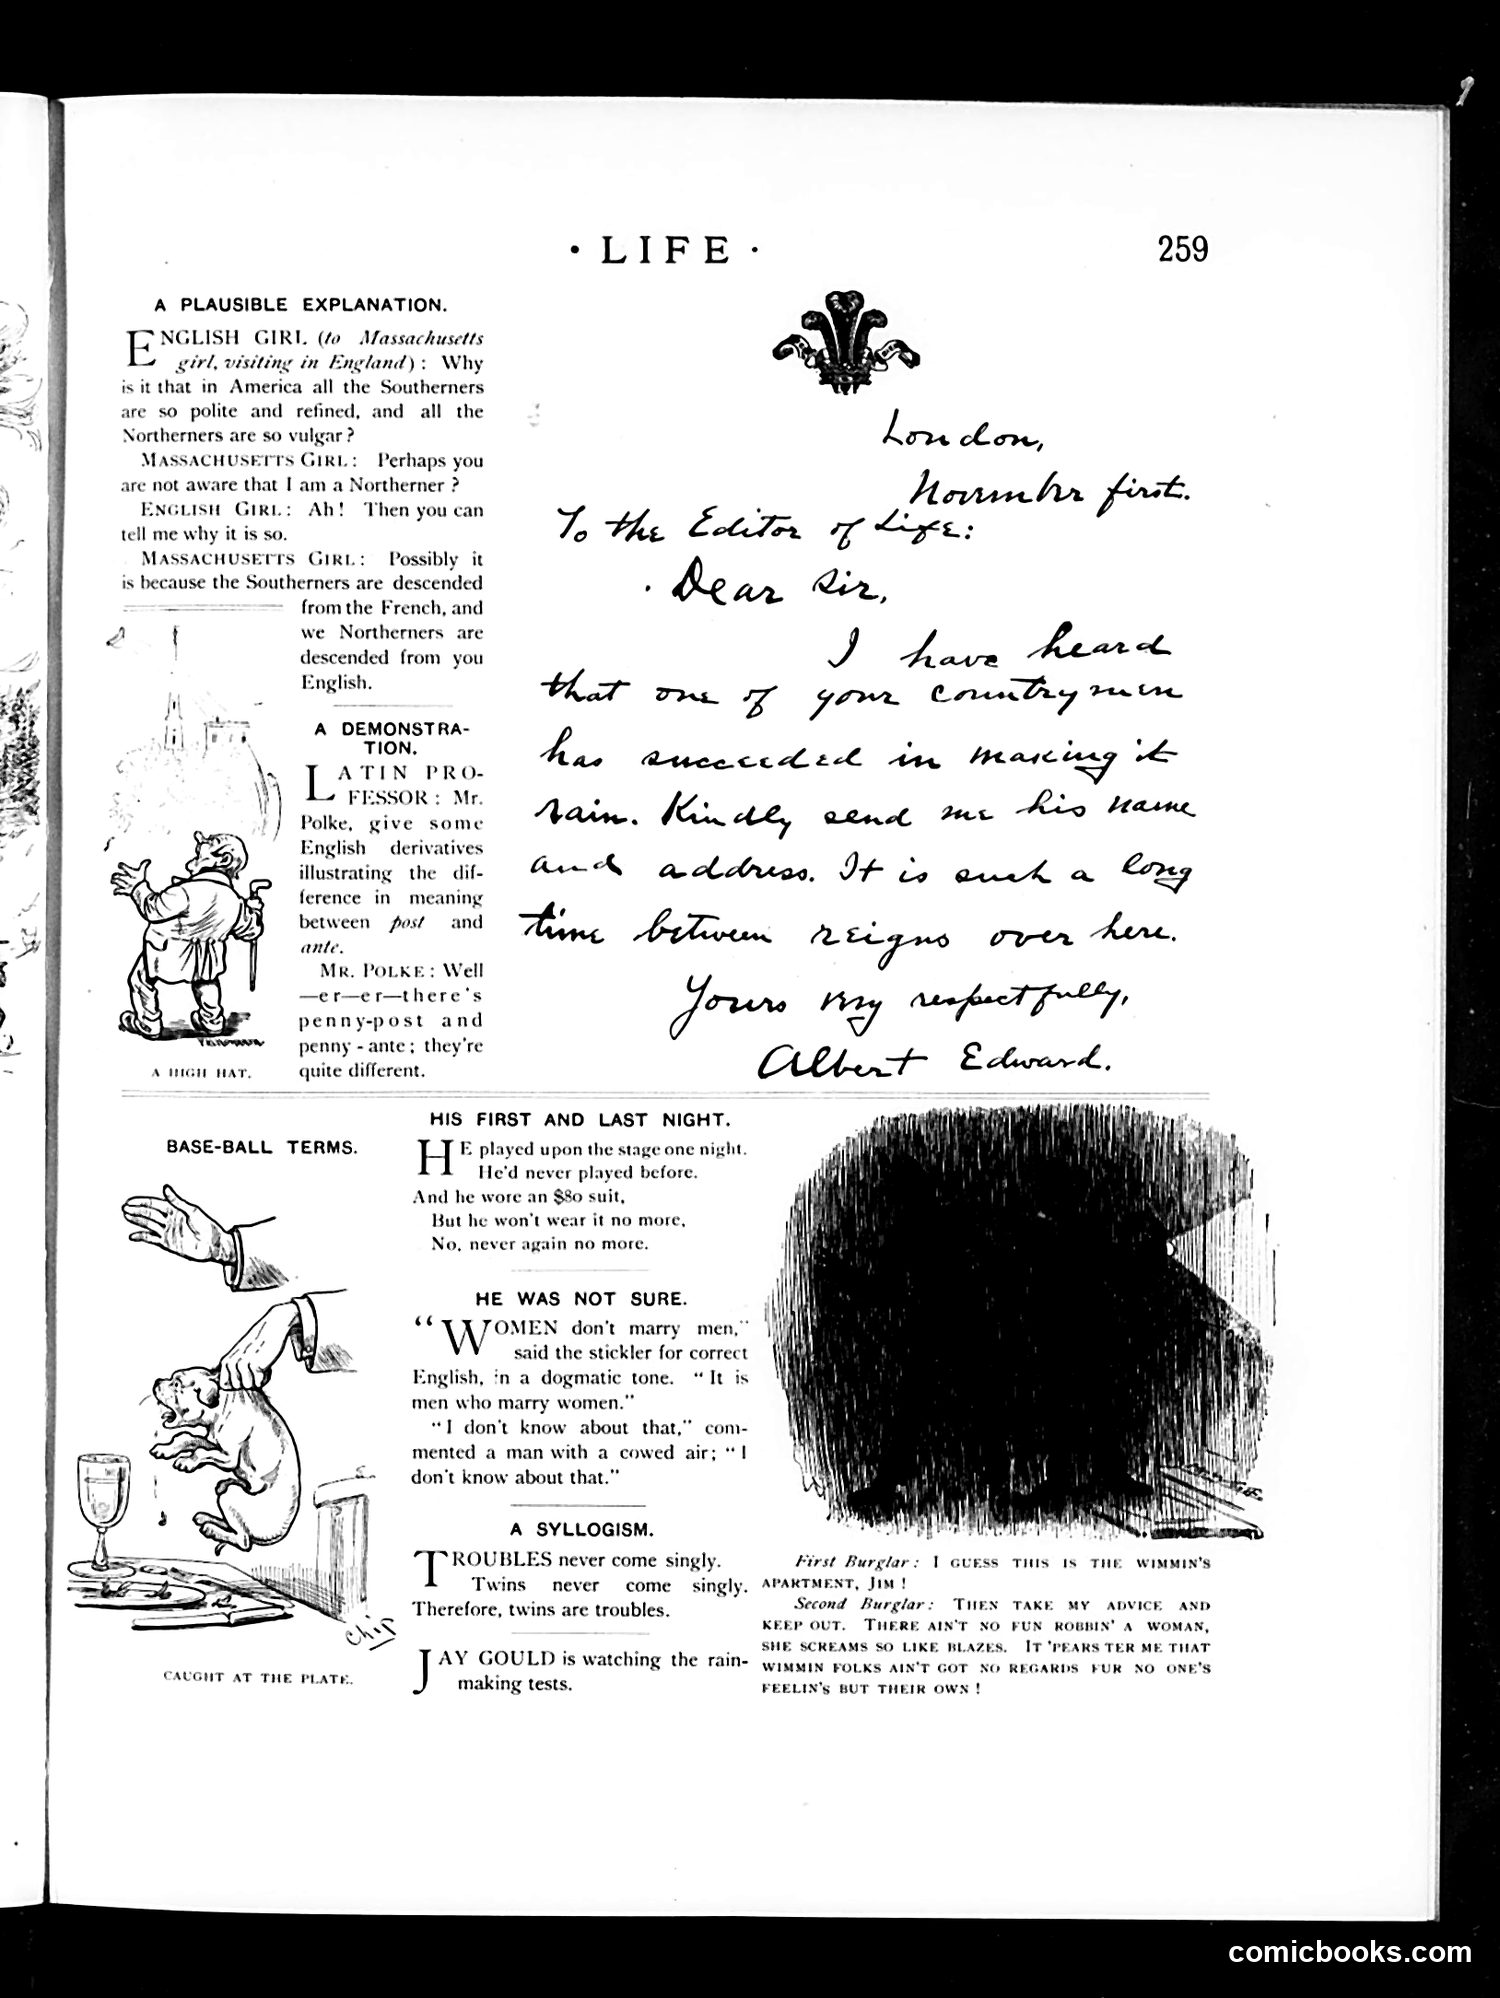 · LIFE ·
259
A PLAUSIBLE EXPLANATION.
ENGLISH GIRL (to Massachusetts
girl, visiting in England): Why
is it that in America all the Southerners
are so polite and refined, and all the
Northerners are so vulgar?
MASSACHUSETTS GIRL: Perhaps you
are not aware that I am a Northerner?
ENGLISH GIRL: Ah! Then you can
tell me why it is so.
MASSACHUSETTS GIRL: Possibly it
is because the Southerners are descended
from the French, and
we Northerners are
descended from you
English.
A HIGH HAT.
A DEMONSTRA-
TION.
LATIN PRO-
FESSOR: Mr.
Polke, give some
English derivatives
illustrating the dif-
ference in meaning
between post and
ante.
MR. POLKE: Well
—er—er—there's
penny-post and
penny-ante; they're
quite different.
London,
November first.
To the Editor of Life:
Dear Sir,
I have heard
that one of your countrymen
has succeeded in making it
rain. Kindly send me his name
and address. It is such a long
time between reigns over here.
Yours very respectfully,
Albert Edward.
BASE-BALL TERMS.
Chip
CAUGHT AT THE PLATE.
HIS FIRST AND LAST NIGHT.
HE played upon the stage one night.
He'd never played before.
And he wore an $80 suit,
But he won't wear it no more,
No, never again no more.
HE WAS NOT SURE.
"WOMEN don't marry men,"
said the stickler for correct
English, in a dogmatic tone. "It is
men who marry women."
"I don't know about that," com-
mented a man with a cowed air; "I
don't know about that."
A SYLLOGISM.
TROUBLES never come singly.
Twins never come singly.
Therefore, twins are troubles.
JAY GOULD is watching the rain-
making tests.
First Burglar: I GUESS THIS IS THE WIMMIN'S
APARTMENT, JIM!
Second Burglar: THEN TAKE MY ADVICE AND
KEEP OUT. THERE AIN'T NO FUN ROBBIN' A WOMAN,
SHE SCREAMS SO LIKE BLAZES. IT 'PEARS TER ME THAT
WIMMIN FOLKS AIN'T GOT NO REGARDS FUR NO ONE'S
FEELIN'S BUT THEIR OWN!
comicbooks.com